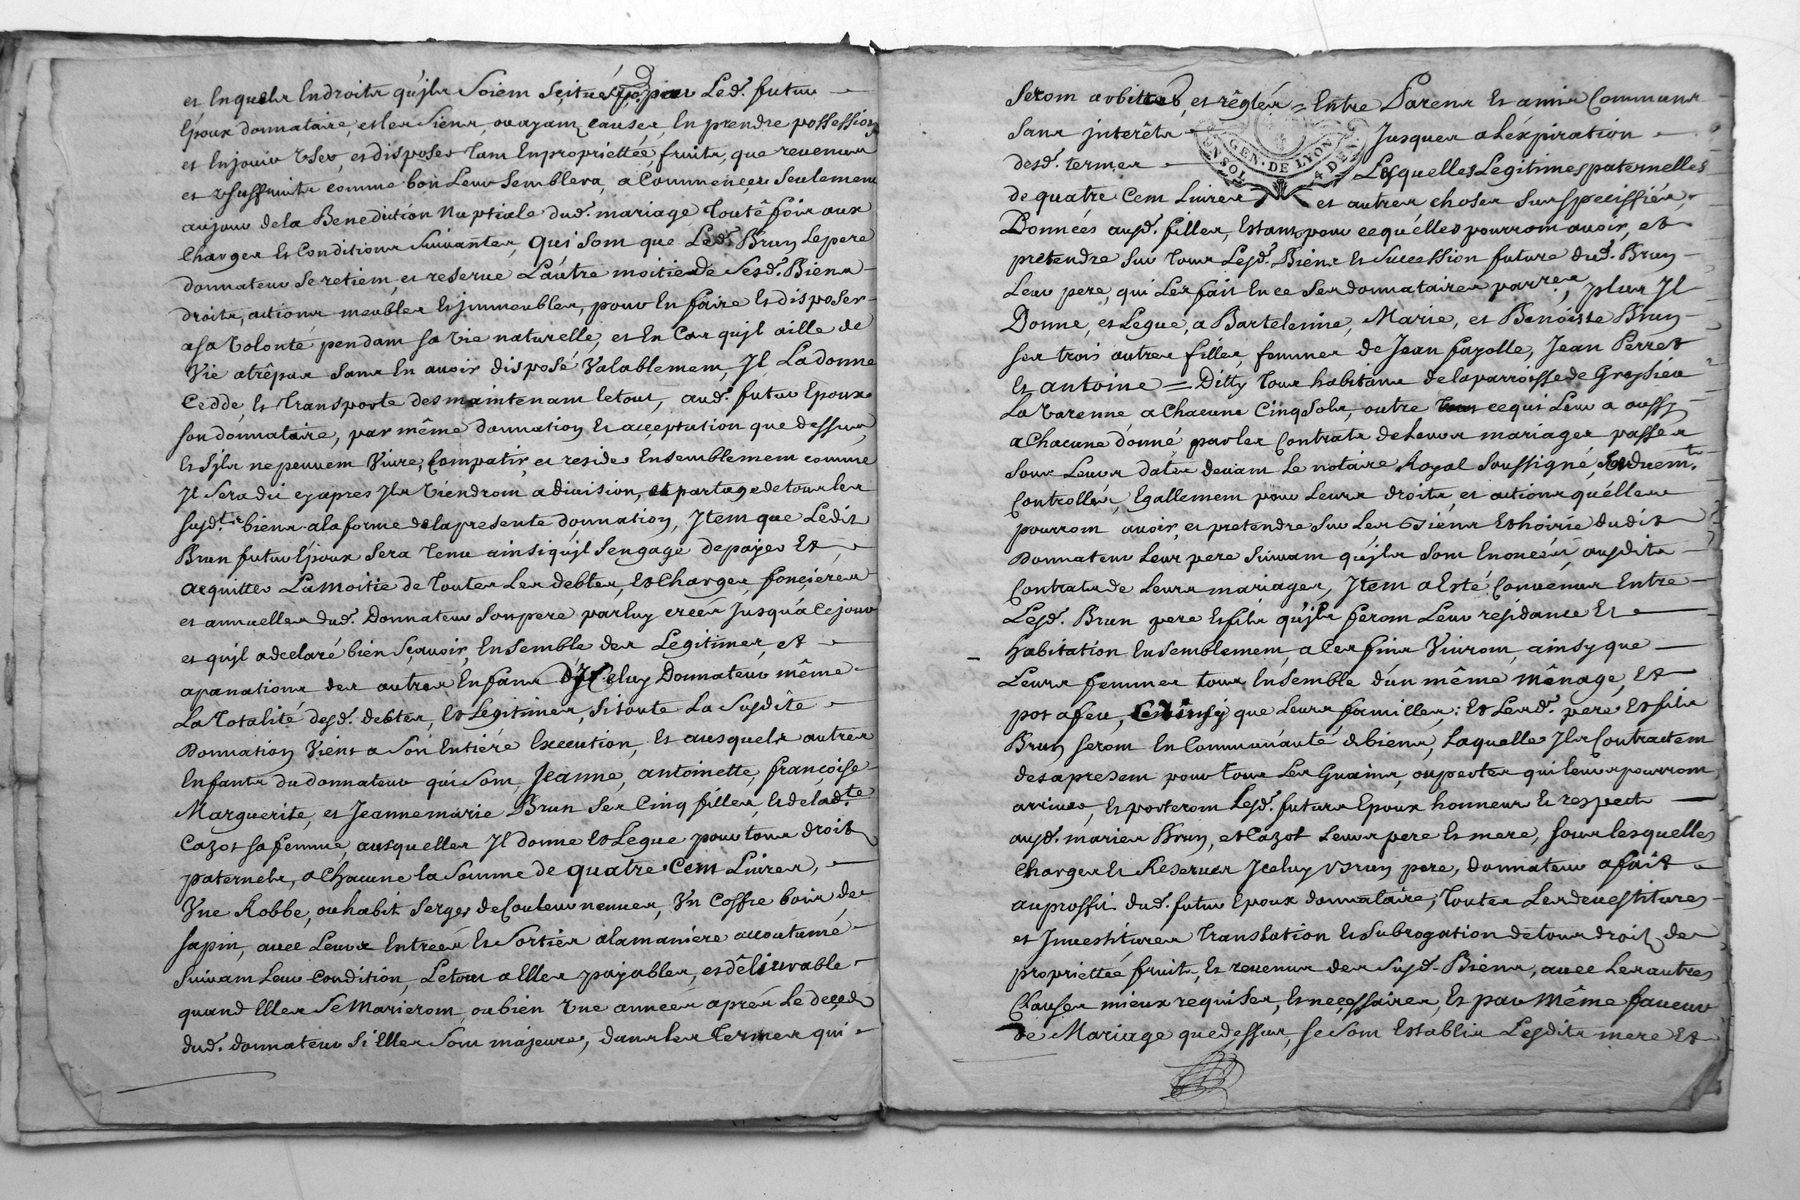 et Enquels Endroits qu'jls Soient Scitués pour Led. futur
Epoux donnataire, et les Siens, ou ayant causes, En prendre possession
et Enjouir User, et disposer Tant Enpropriettée, fruits, que revenus
et Usuffruits comme bon Leur Semblera, a Commencer Seulement
aujour dela Benediction Nuptiale dud. mariage Toutêfois aux
Charges Et Conditions Suivantes, qui Sont que Led. Brun Lepere
donnateur Se retient, et reserve L'autre moitie de Sesd. Biens
droits, actions meubles Et jmmeubles, pour En faire Et disposer
a sa Volonté pendant sa Vie naturelle, et En Cas qu'jl aille de
Vie atrêpas Sans En avoir disposé Valablement, Jl La donne
Cedde, Et Transporte des maintenant letout, aud. futur Epoux
son donnataire, par même donnation Et acceptation que dessus,
Et S'jls nepeuvent Vivre, Compatir, et resider Ensemblement comme
Jl Sera dit cyapres Jls Viendront a division, et partage detous les
susd.ts biens ala forme de lapresente donnation, Jtem que Ledit
Brun futur Epoux Sera Tenu ainsi qu'jl S'engage depayer Et
acquitter La moitie de Toutes Les debtes, Et Charges, foncieres
et annuelles dud. Donnateur Sonpere par luy créés Jusqu'a Ce jour
et qu'jl a declaré bien Sçavoir, Ensemble des Legitimes, et
apanations des autres Enfans d'jCeluy Donnateur même
La Totalité desd. debtes, Et Legitimes, Si toute La Susdite
Donnation Vient a Son Entiére Execution, Et ausquels autres
Enfants du donnateur qui Sont, Jeanne, antoinette, françoise
Marguerite, et Jeannemarie Brun Ses Cinq filles, Et de lad.te
Cazot sa femme, ausquelles Jl donne Et Legue pour tous droits
paternels, a Chacune la Somme de quatre Cent Livres,
Vne Robbe, ou habit Serges de Couleur neuves, Vn Coffre bois de
sapin, avec Leurs Entreés Et Sorties ala maniére accoutumé
Suivant Leur Condition, Letout a Elles payables, et dêlivrable
quand Elles Se Marieront, ou bien Vne année aprés Le decéd
dud. donnateur Si Elles Sont majeures, dans les Termes qui
Seront arbitrés, et rêglés = Entre Parens Et amis Communs
Sans jnterêts Jusques a L'éxpiration
desd. termes Lesquelles Legitimes paternelles
GEN. DE LYON
de quatre Cent Livres et autres choses Sus speciffiées,
Données ausd. filles, Estans pour cequ'élles pourront avoir, et
pretendre Sur Tous Lesd. Biens Et Sucession future dud. Brun
Leur pere, qui Les fait En ce Ses donnataires, plus Jl
Donne, et Legue, a Bartelemine, Marie, et Benoiste Brun
ses trois autres filles, femmes de Jean fayolle, Jean Perret
Et antoine = Ditty Tous habitans de laparroisse de Greysieu
La Varenne a Chacune Cinq Sols, outre cequi Leur a aussy
a Chacune donné par les Contrats de Leurs mariages passés
Sous Leurs dates devant Le notaire Royal Soussigné, Et duem.t
Controllés, Egallement pour Leurs droits, et actions qu'élles
pourront avoir, et pretendre Sur Les Biens Et hoirie dudit
Donnateur Leur pere Suivant qu'jls Sont Enoncés ausdits
Contrats de Leurs mariages, Jtem a Esté Convenus Entre
Lesd. Brun pere Et fils qu'jls feront Leur résidance Et
habitation Ensemblement, a Ces fins Vivront, ainsy que
Leurs femmes tous Ensemble d'un même mênage, Et
pot a feu, Et Ainsy que Leurs familles; Et Lesd. pere Et fils
Brun Seront En Communauté de biens, Laquelle Jls Contractent
des apresent pour tous Les Guains, ou pertes qui leurs pourront
arriver, Et porteront Lesd. futurs Epoux honneur Et respect
ausd. mariés Brun, et Cazot Leurs pere Et mere, sous lesquelles
Charges Et Reserves Jceluy Brun pere, donnateur a fait
auproffit dud. futur Epoux donnataire, Toutes Les devestitures
et Jnvestitures Translation Et Subrogation de tous droits de
propriettée fruits, Et revenus des Susd. Biens, avec Les autres
Clauses mieux requises, Et neçessaires, Et par Même faveur
de Mariage que dessus, se Sont Establis Lesdits mere Et